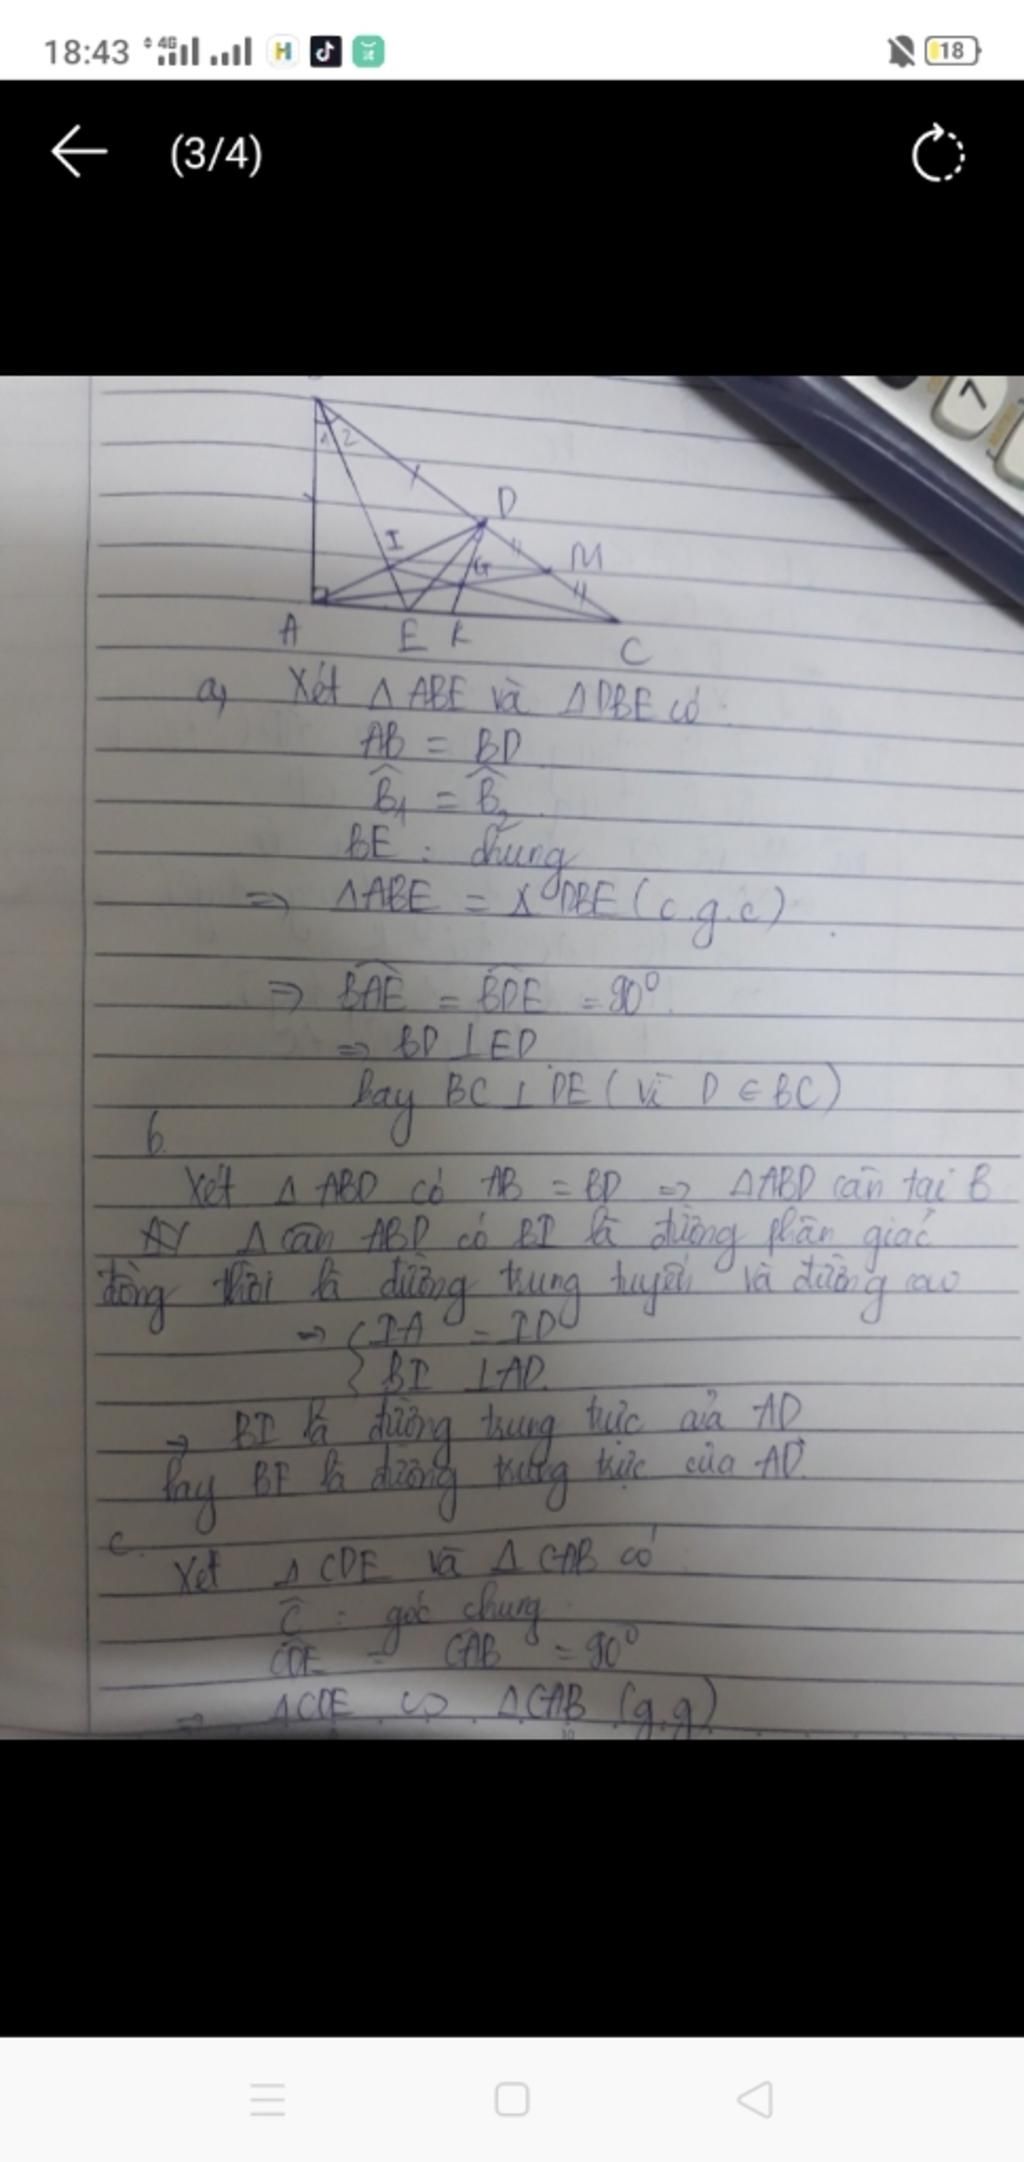 18:43 4G H 18
(3/4)
1 2
D
I
G
M
A E K C
a, Xét Δ ABE và Δ DBE có
AB = BD
B̂₁ = B̂₂
BE : chung
=> ΔABE = Δ DBE (c.g.c)
=> BAE = BDE = 90°
=> BD ⊥ ED
hay BC ⊥ DE (vì D ∈ BC)
b.
Xét Δ ABD có AB = BD => ΔABD cân tại B
Δ cân ABD có BI là đường phân giác
đồng thời là đường trung tuyến và đường cao
=> { IA = ID
BI ⊥ AD.
=> BI là đường trung trực của AD
hay BE là đường trung trực của AD.
c.
Xét Δ CDE và Δ CAB có
Ĉ : góc chung
CDE = CAB = 90°
=> ΔCDE ∽ ΔCAB (g.g)
7